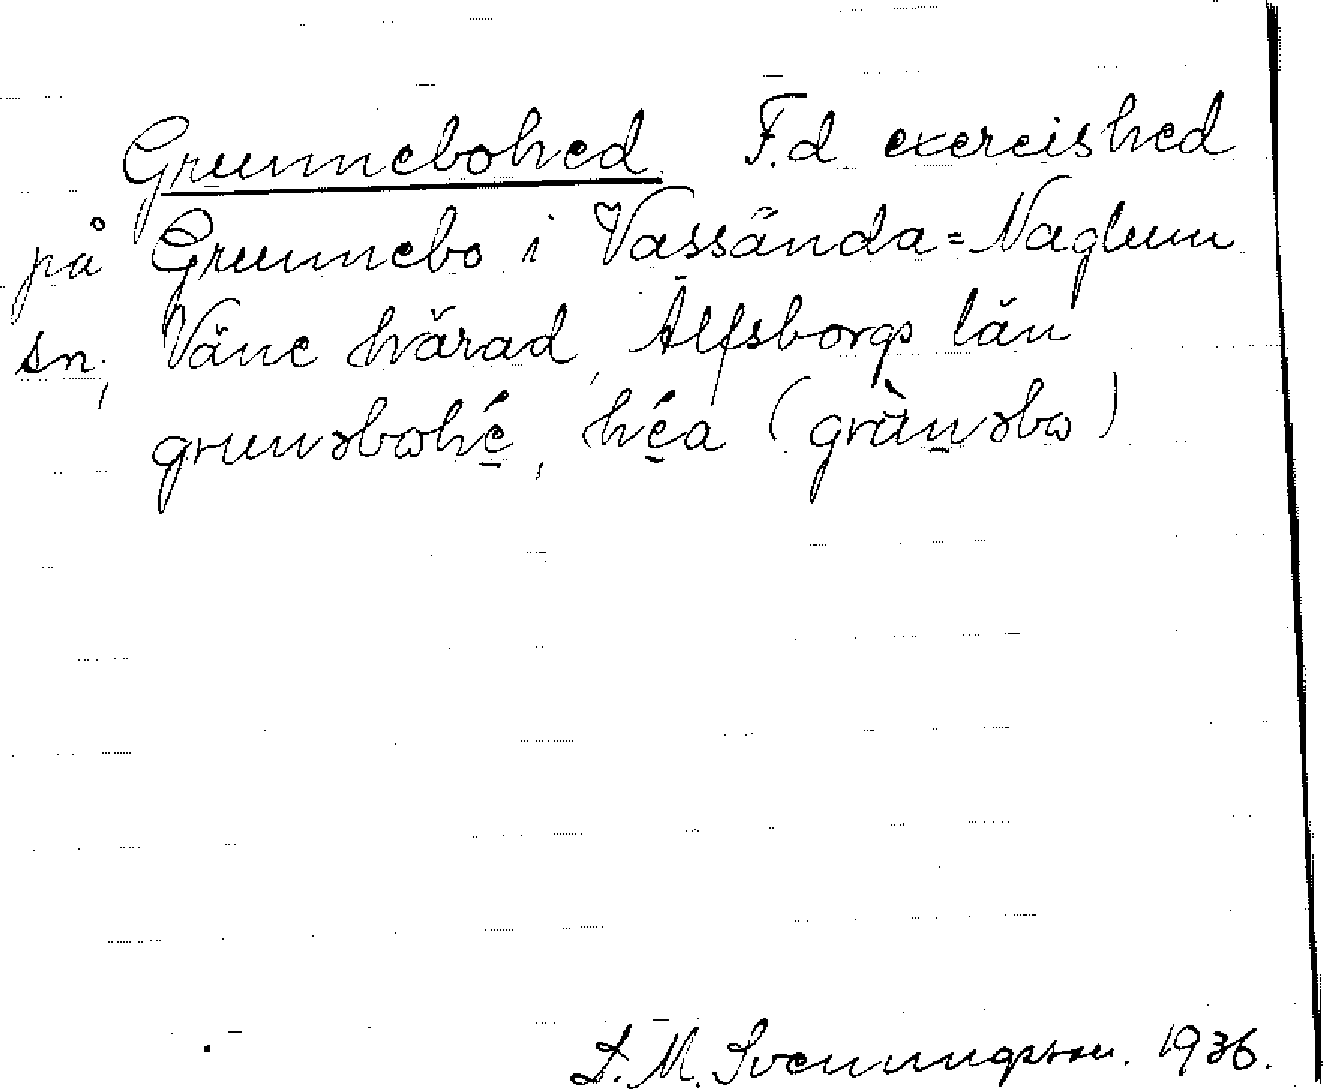 Grunnebohed F.d exercished
på Grunnebo i Vassända=Naglum
sn, Väne härad, Älfsborgs län
grunəbohé̱, hé̱a (grùn̠əbo)
S. M. Svenningsson. 1936.